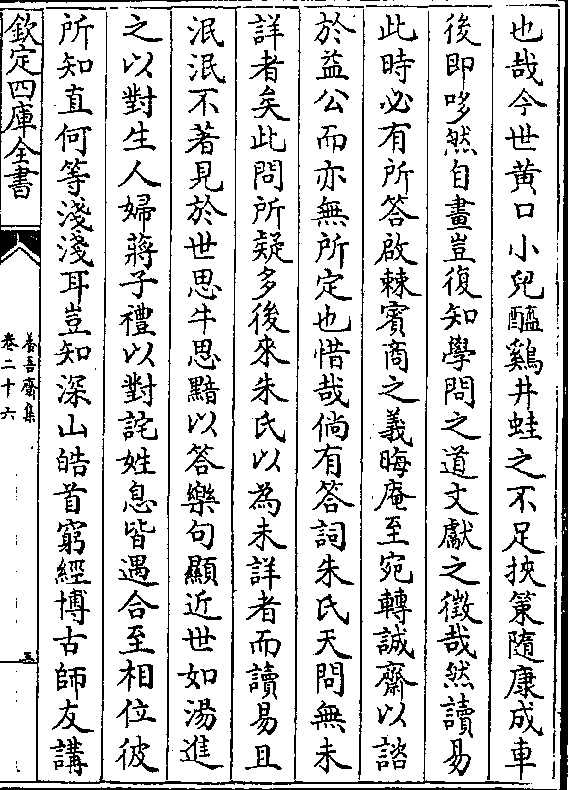 也哉今世黄口小兒醯鷄井蛙之不足挾䇿隨康成車
後即哆然自畫豈復知學問之道文獻之徴哉然讀易
此時必有所答啟棘賓商之義晦庵至宛轉誠齋以諮
於益公而亦無所定也惜哉倘有答詞朱氏天問無未
詳者矣此問所疑多後來朱氏以為未詳者而讀易且
泯泯不著見於世思牛思黯以答樂句顯近世如湯進
之以對生人婦蔣子禮以對詫姓息皆遇合至相位彼
所知直何等淺淺耳豈知深山皓首窮經博古師友講
欽定四庫全書
養吾齋集
卷二十六
五